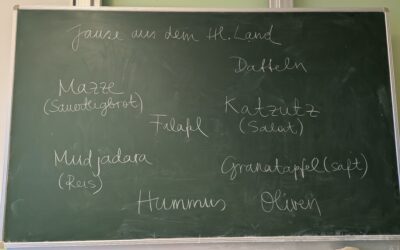 Jause aus dem Hl. Land
Datteln
Mazze
(Sauerteigbrot)
Katzutz
(Salat)
Falafel
Mudjadara
(Reis)
Granatapfel (saft)
Hummus Oliven